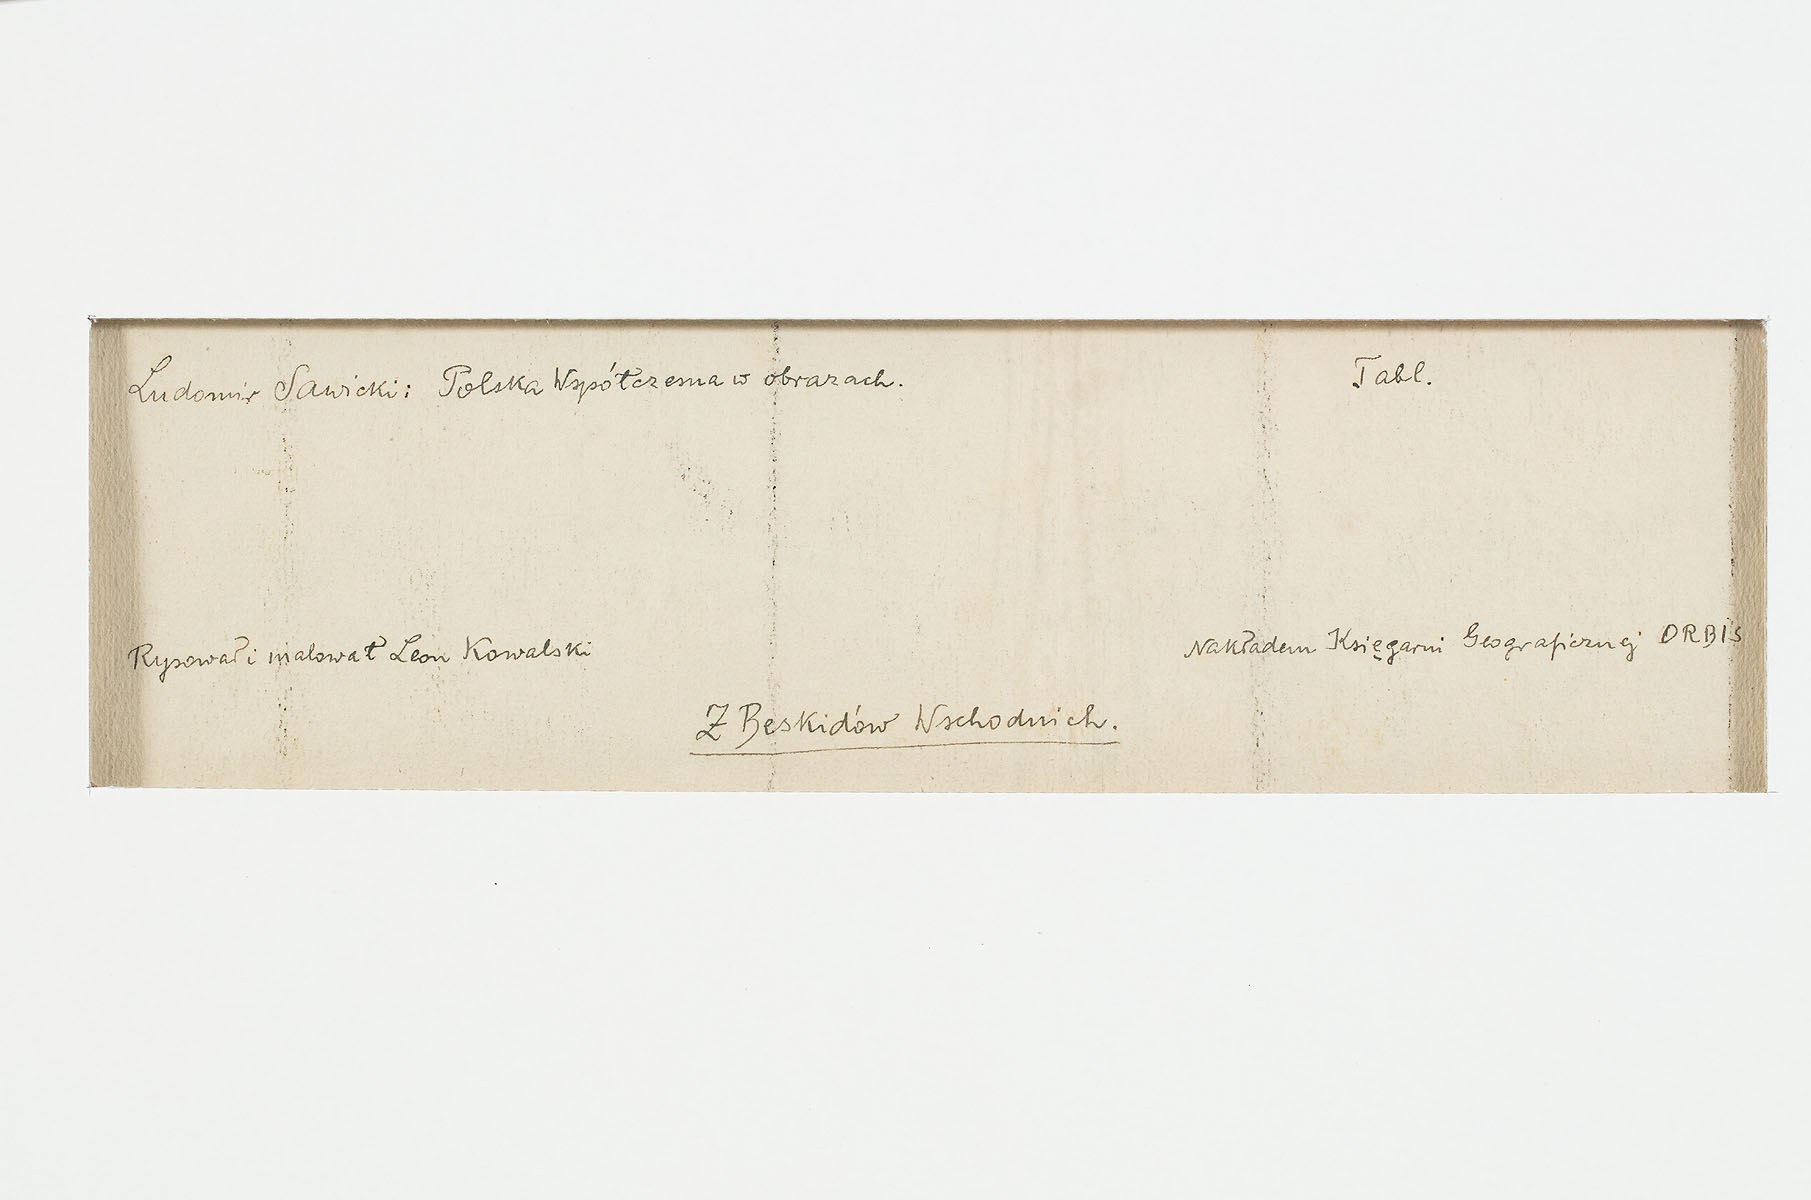 Ludomir Sawicki: Polska Współczesna w obrazach. Tabl.
Rysował i malował Leon Kowalski Nakładem Księgarni Geograficznej ORBIS
Z Beskidów Wschodnich.